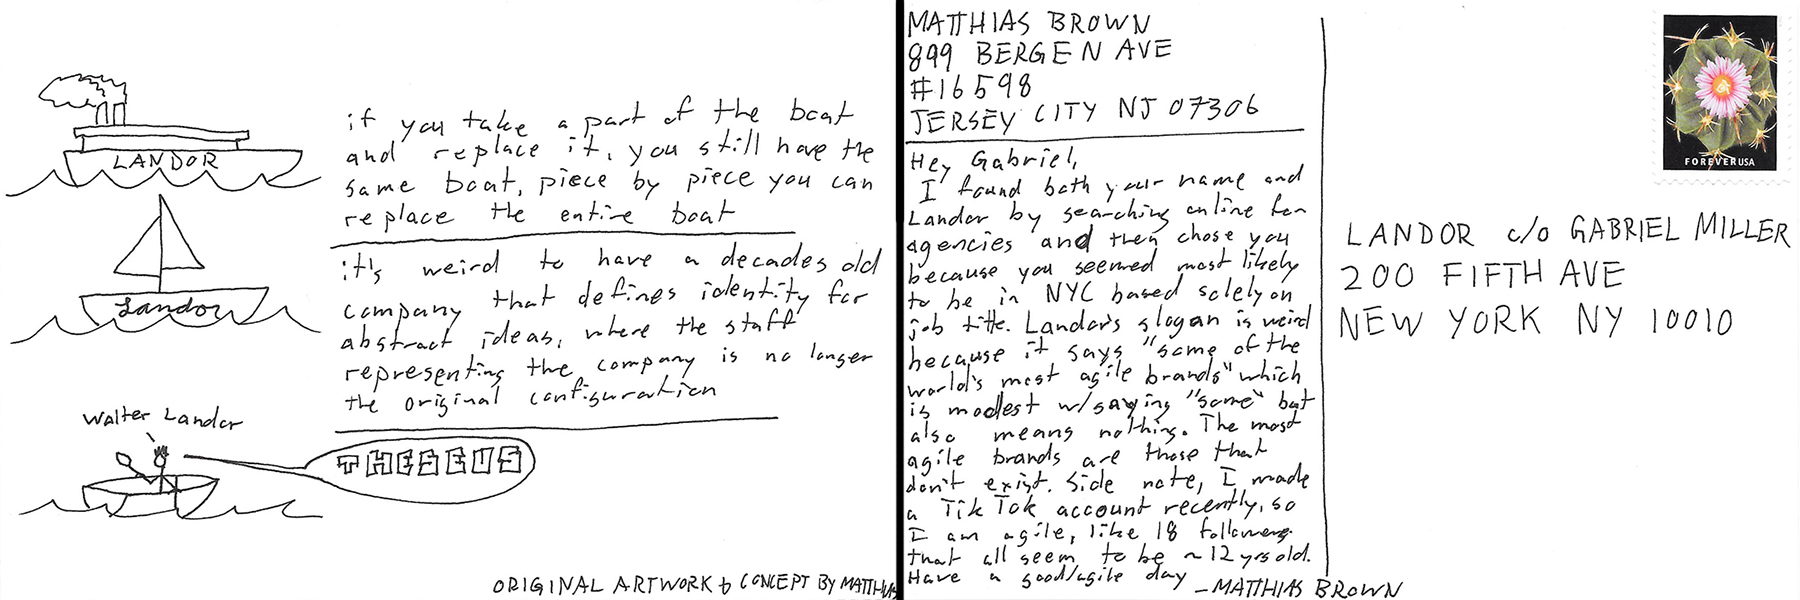 LANDOR
Landor
Walter Landor
THESEUS
if you take a part of the boat
and replace it, you still have the
same boat, piece by piece you can
replace the entire boat
it's weird to have a decades old
company that defines identity for
abstract ideas, where the staff
representing the company is no longer
the original configuration
ORIGINAL ARTWORK & CONCEPT BY MATTHIAS
MATTHIAS BROWN
899 BERGEN AVE
#16598
JERSEY CITY NJ 07306
Hey Gabriel,
I found both your name and
Landor by searching online for
agencies and then chose you
because you seemed most likely
to be in NYC based solely on
job title. Landor's slogan is weird
because it says "some of the
world's most agile brands" which
is modest w/saying "some" but
also means nothing. The most
agile brands are those that
don't exist. Side note, I made
a TikTok account recently, so
I am agile, like 18 followers
that all seem to be ~12 yrs old.
Have a good/agile day
-MATTHIAS BROWN
FOREVER USA
LANDOR c/o GABRIEL MILLER
200 FIFTH AVE
NEW YORK NY 10010